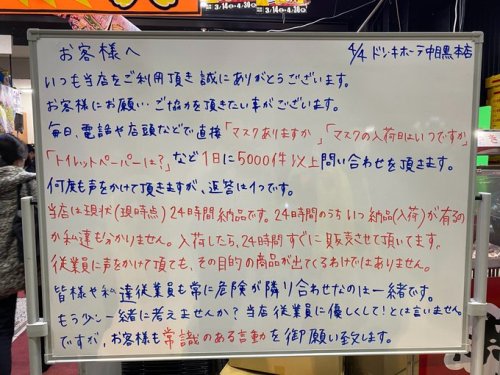 3/14(土)-4/30(木)
3/14(土)-4/30(木)
お客様へ
4/4 ドン・キホーテ中目黒本店
いつも当店をご利用頂き誠にありがとうございます。
お客様にお願い・ご協力を頂きたい事がございます。
毎日、電話や店頭などで直接「マスクありますか」、「マスクの入荷日はいつですか」
「トイレットペーパーは?」など1日に5000件以上問い合わせを頂きます。
何度も声をかけて頂きますが、返答は1つです。
当店は現状(現時点)24時間納品です。24時間のうちいつ納品(入荷)が有るの
か私達も分かりません。入荷したら、24時間すぐに販売させて頂いてます。
従業員に声をかけて頂ても、その目的の商品が出てくるわけではありません。
皆様や私達従業員も常に危険が隣り合わせなのは一緒です。
もう少し一緒に考えませんか?当店従業員に優しくして!とは言いません
ですが、お客様も常識のある言動を御願い致します。